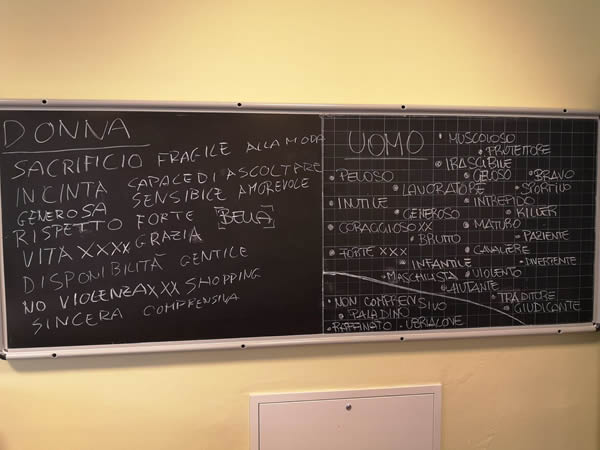 DONNA
SACRIFICIO FRAGILE ALLA MODA
INCINTA CAPACE DI ASCOLTARE
GENEROSA SENSIBILE AMOREVOLE
RISPETTO FORTE [BELLA]
VITA XXXX GRAZIA
DISPONIBILITÀ GENTILE
NO VIOLENZA XXX SHOPPING
SINCERA COMPRENSIVA
UOMO
• MUSCOLOSO
• PROTETTORE
• IRASCIBILE
• PELOSO • GELOSO • BRAVO
• LAVORATORE • SPORTIVO
• INUTILE • INTREPIDO
• GENEROSO • KILLER
• CORAGGIOSO XX • MATURO
• BRUTTO • PAZIENTE
• FORTE XXX • CAVALIERE
• INFANTILE • DIVERTENTE
• MASCHILISTA • VIOLENTO
• AIUTANTE
• NON COMPRENSIVO • TRADITORE
• PALADINO • GIUDICANTE
• RAFFINATO